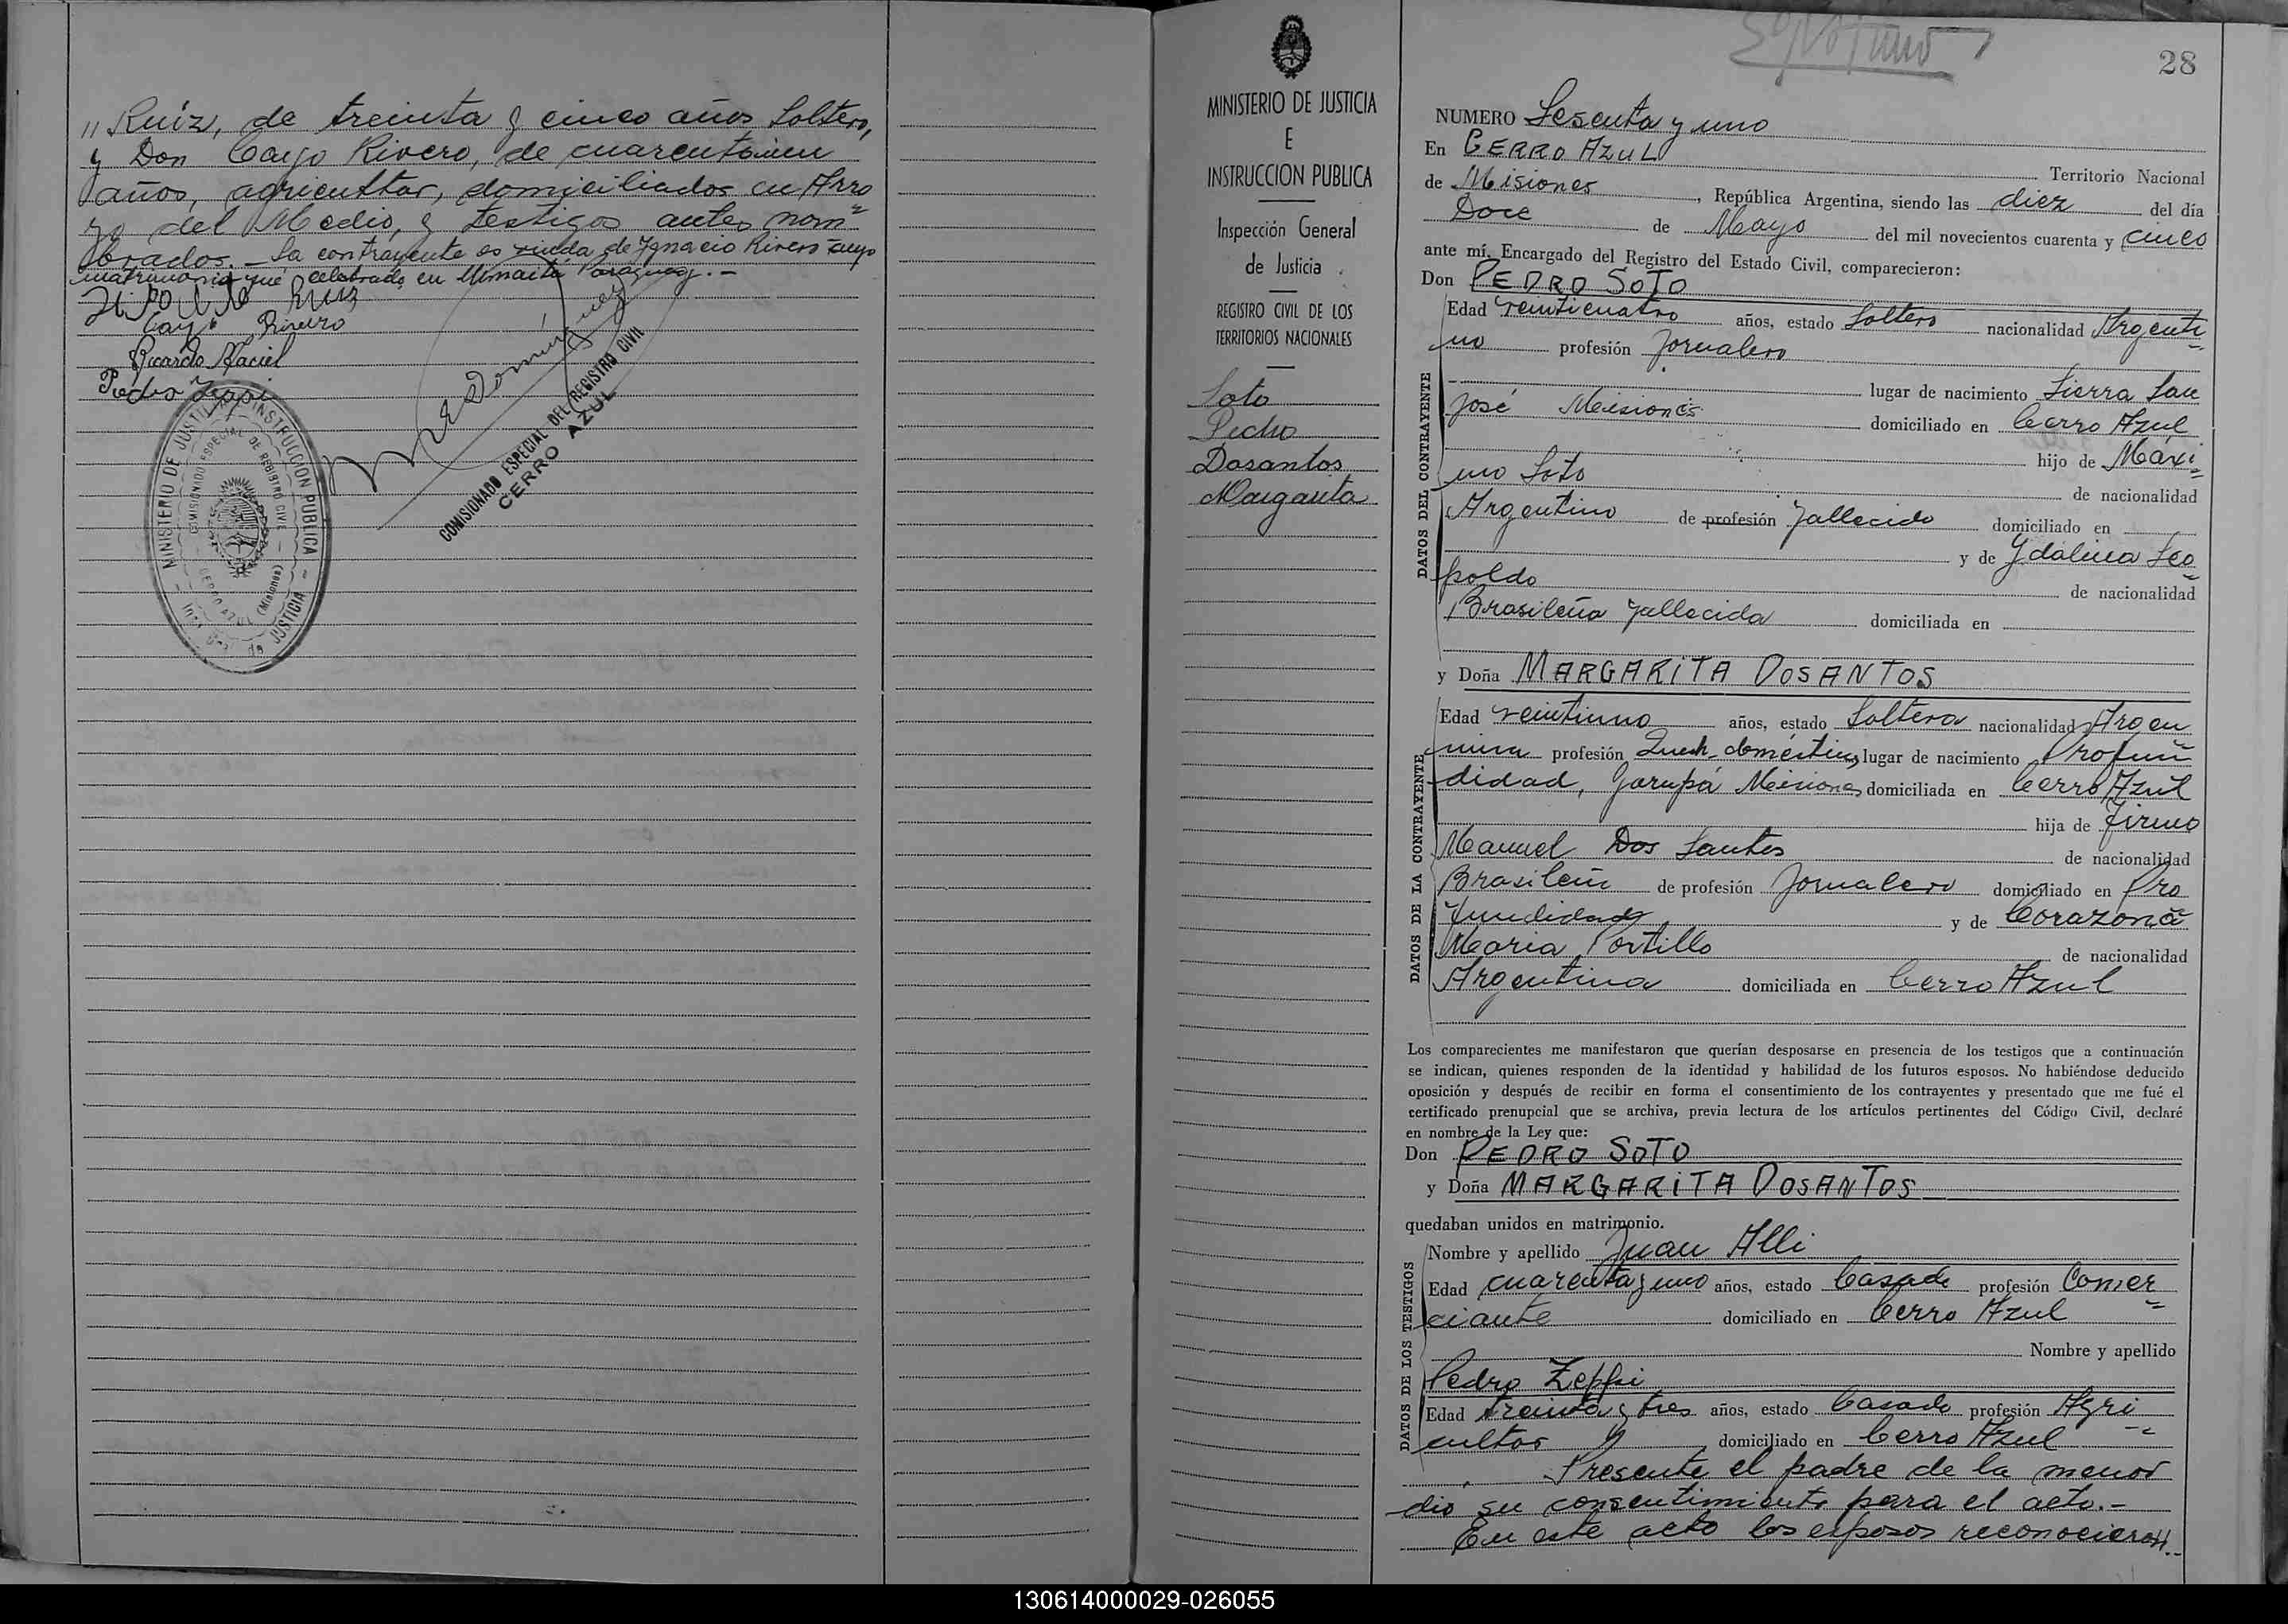 " Ruiz, de treinta y cinco años Soltero,
y Don Cayo Rivero, de cuarentaiun
años, agricultor, domiciliados en Arro
yo del Medio, y testigos antes nom=
brados.- La contrayente es viuda de Ygnacio Rivero cuyo
matrimonio fué celebrado en Umaitá Paraguay.-
Ruiz
Cayo Rivero
Ricardo Maciel
Pedro Zeppi
MINISTERIO DE JUSTICIA E INSTRUCCION PUBLICA
COMISIONADO ESPECIAL DE REGISTRO CIVIL
CERRO AZUL (Misiones)
COMISIONADO ESPECIAL DEL REGISTRO CIVIL
CERRO AZUL
MINISTERIO DE JUSTICIA
E
INSTRUCCION PUBLICA
Inspección General
de Justicia
REGISTRO CIVIL DE LOS
TERRITORIOS NACIONALES
Soto
Pedro
Dosantos
Margarita
28
NUMERO Sesenta y uno
En CERRO AZUL Territorio Nacional
de Misiones, República Argentina, siendo las diez del día
Doce de Mayo del mil novecientos cuarenta y cinco
ante mí, Encargado del Registro del Estado Civil, comparecieron:
Don PEDRO SOTO
DATOS DEL CONTRAYENTE
Edad veinticuatro años, estado Soltero nacionalidad Argenti
no profesión Jornalero
lugar de nacimiento Sierra San
José Misiones domiciliado en Cerro Azul
hijo de Máxi=
mo Soto de nacionalidad
Argentino de profesión fallecido domiciliado en
y de Ydalina Leo=
poldo de nacionalidad
Brasileña fallecida domiciliada en
y Doña MARGARITA DOSANTOS
DATOS DE LA CONTRAYENTE
Edad veintiuno años, estado Soltera nacionalidad Argen
tina profesión Queh. domésticos lugar de nacimiento Profun
didad, Garupá Misiones domiciliada en Cerro Azul
hija de Firmo
Manuel Dos Santos de nacionalidad
Brasileño de profesión Jornalero domiciliado en Pro
fundidad y de Corazona
Maria Portillo de nacionalidad
Argentina domiciliada en Cerro Azul
Los comparecientes me manifestaron que querían desposarse en presencia de los testigos que a continuación
se indican, quienes responden de la identidad y habilidad de los futuros esposos. No habiéndose deducido
oposición y después de recibir en forma el consentimiento de los contrayentes y presentado que me fué el
certificado prenupcial que se archiva, previa lectura de los artículos pertinentes del Código Civil, declaré
en nombre de la Ley que:
Don PEDRO SOTO
y Doña MARGARITA DOSANTOS
quedaban unidos en matrimonio.
DATOS DE LOS TESTIGOS
Nombre y apellido Juan Alli
Edad cuarenta y uno años, estado Casado profesión Comer=
ciante domiciliado en Cerro Azul
Nombre y apellido
Pedro Zeppi
Edad treinta y tres años, estado Casado profesión Agri=
cultor domiciliado en Cerro Azul
Presente el padre de la menor
dio su consentimiento para el acto.-
En este acto los esposos reconocieron
130614000029-026055